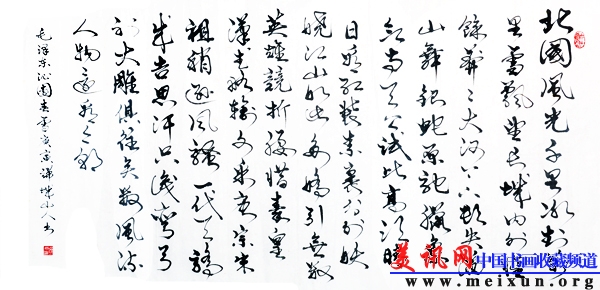 北國風光千里冰封萬
里雪飄望長城內外惟
餘莽〻大河上下頓失滔〻
山舞銀蛇原馳蠟象
欲與天公試比高須晴
日看紅裝素裹分外妖
嬈江山如此多嬌引無數
英雄競折腰惜秦皇
漢武略輸文采唐宗宋
祖稍遜風騷一代天驕
成吉思汗只識彎弓
射大雕俱往矣數風流
人物還看今朝
毛澤東沁園春雪庚寅 山人書
美讯网
中国书画收藏频道
www.meixun.org